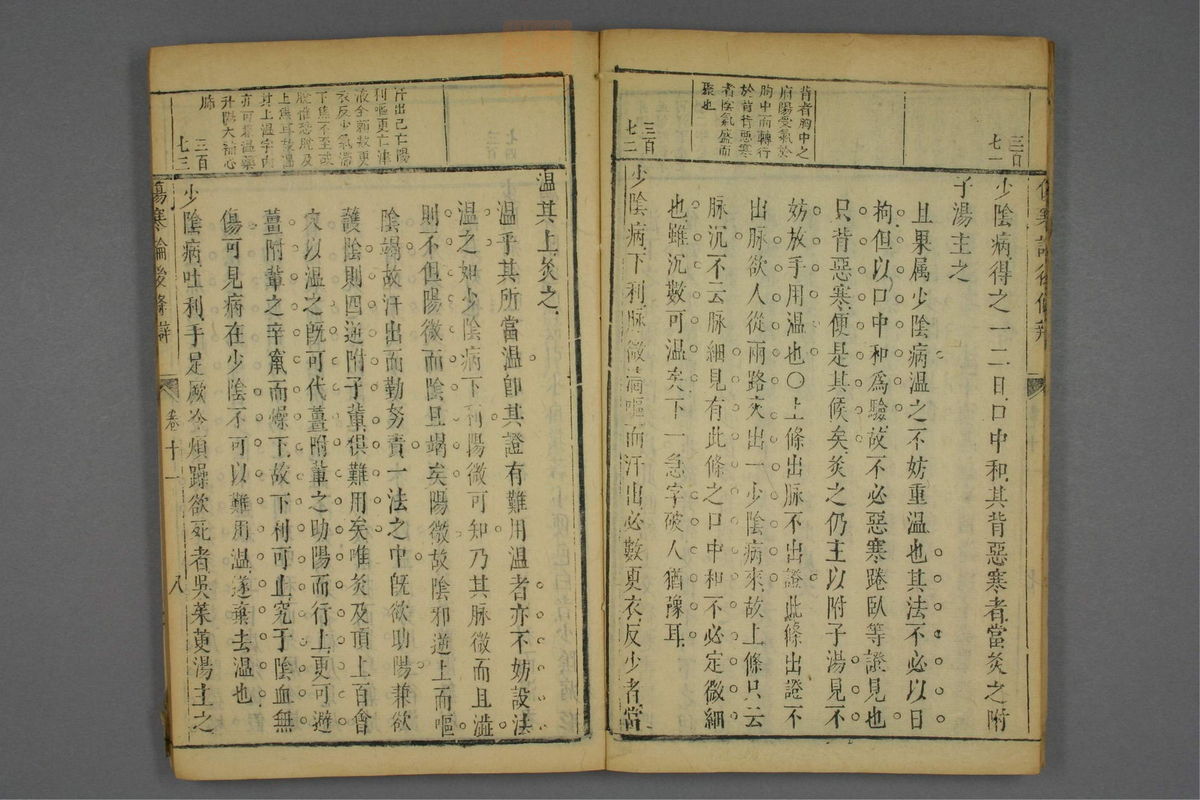 三百七一
少陰病得之一二日口中和其背惡寒者當灸之附
子湯主之
且果属少陰病温之不妨重温也其法不必以日
拘但以口中和爲驗故不必惡寒踡臥等證見也
只背惡寒便是其候矣灸之仍主以附子湯見不
妨放手用温也〇上條出脉不出證此條出證不
出脉欲人從兩路夾出一少陰病來故上條只云
脉沉不云脉細見有此條之口中和不必定微細
也雖沉數可温矣下一急字破人猶豫耳
背者胸中之
府陽受氣於
胸中而轉行
於背背惡寒
者陰氣盛而
聚也
三百七二
少陰病下利脉微濇嘔而汗出必數更衣反少者當
温其上灸之
温乎其所當温卽其證有難用温者亦不妨設法
温之如少陰病下利陽微可知乃其脉微而且濇
則不但陽微而陰且竭矣陽微故陰邪逆上而嘔
陰竭故汗出而勤努責一法之中旣欲助陽兼欲
護陰則四逆附子輩俱難用矣唯灸及頂上百會
穴以温之旣可代薑附輩之助陽而行上更可避
薑附輩之辛竄而燥下故下利可止究于陰血無
傷可見病在少陰不可以難用温遂棄去温也
汗出已亡陽
利嘔更亡津
液全賴數更
衣反少氣濇
下焦不至或
脫惟恐脫及
上焦耳故温
其上温字內
亦可兼温藥
升陽大補心
肺
三百七三
少陰病吐利手足厥冷煩躁欲死者吳茱萸湯主之
傷寒論後條辯
卷十一
八